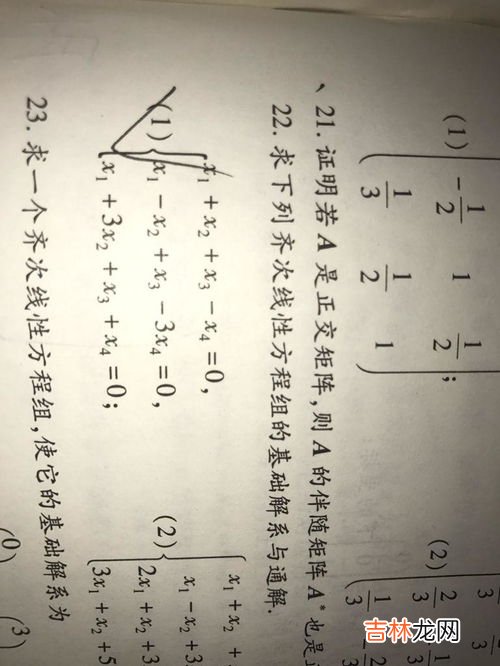 (1) 
-1/2 1 1/2
1/3 1/2 1 ;
(2)
2/3
1/3
21. 证明若 A 是正交矩阵,则 A 的伴随矩阵 A* 也是
22. 求下列齐次线性方程组的基础解系与通解.
(1) x₁ + x₂ + x₃ - x₄ = 0,
x₁ - x₂ + x₃ - 3x₄ = 0,
x₁ + 3x₂ + x₃ + x₄ = 0;
(2) x₁ + x₂
x₁ - x₂ + 3
2x₁ + x₂ + 3
3x₁ + x₂ + 5
23. 求一个齐次线性方程组,使它的基础解系为
(0) (3)
吉林龙网